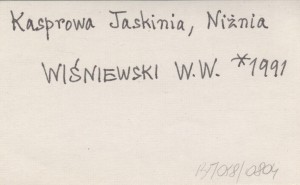 Kasprowa Jaskinia, Niżnia
WIŚNIEWSKI W.W. *1991